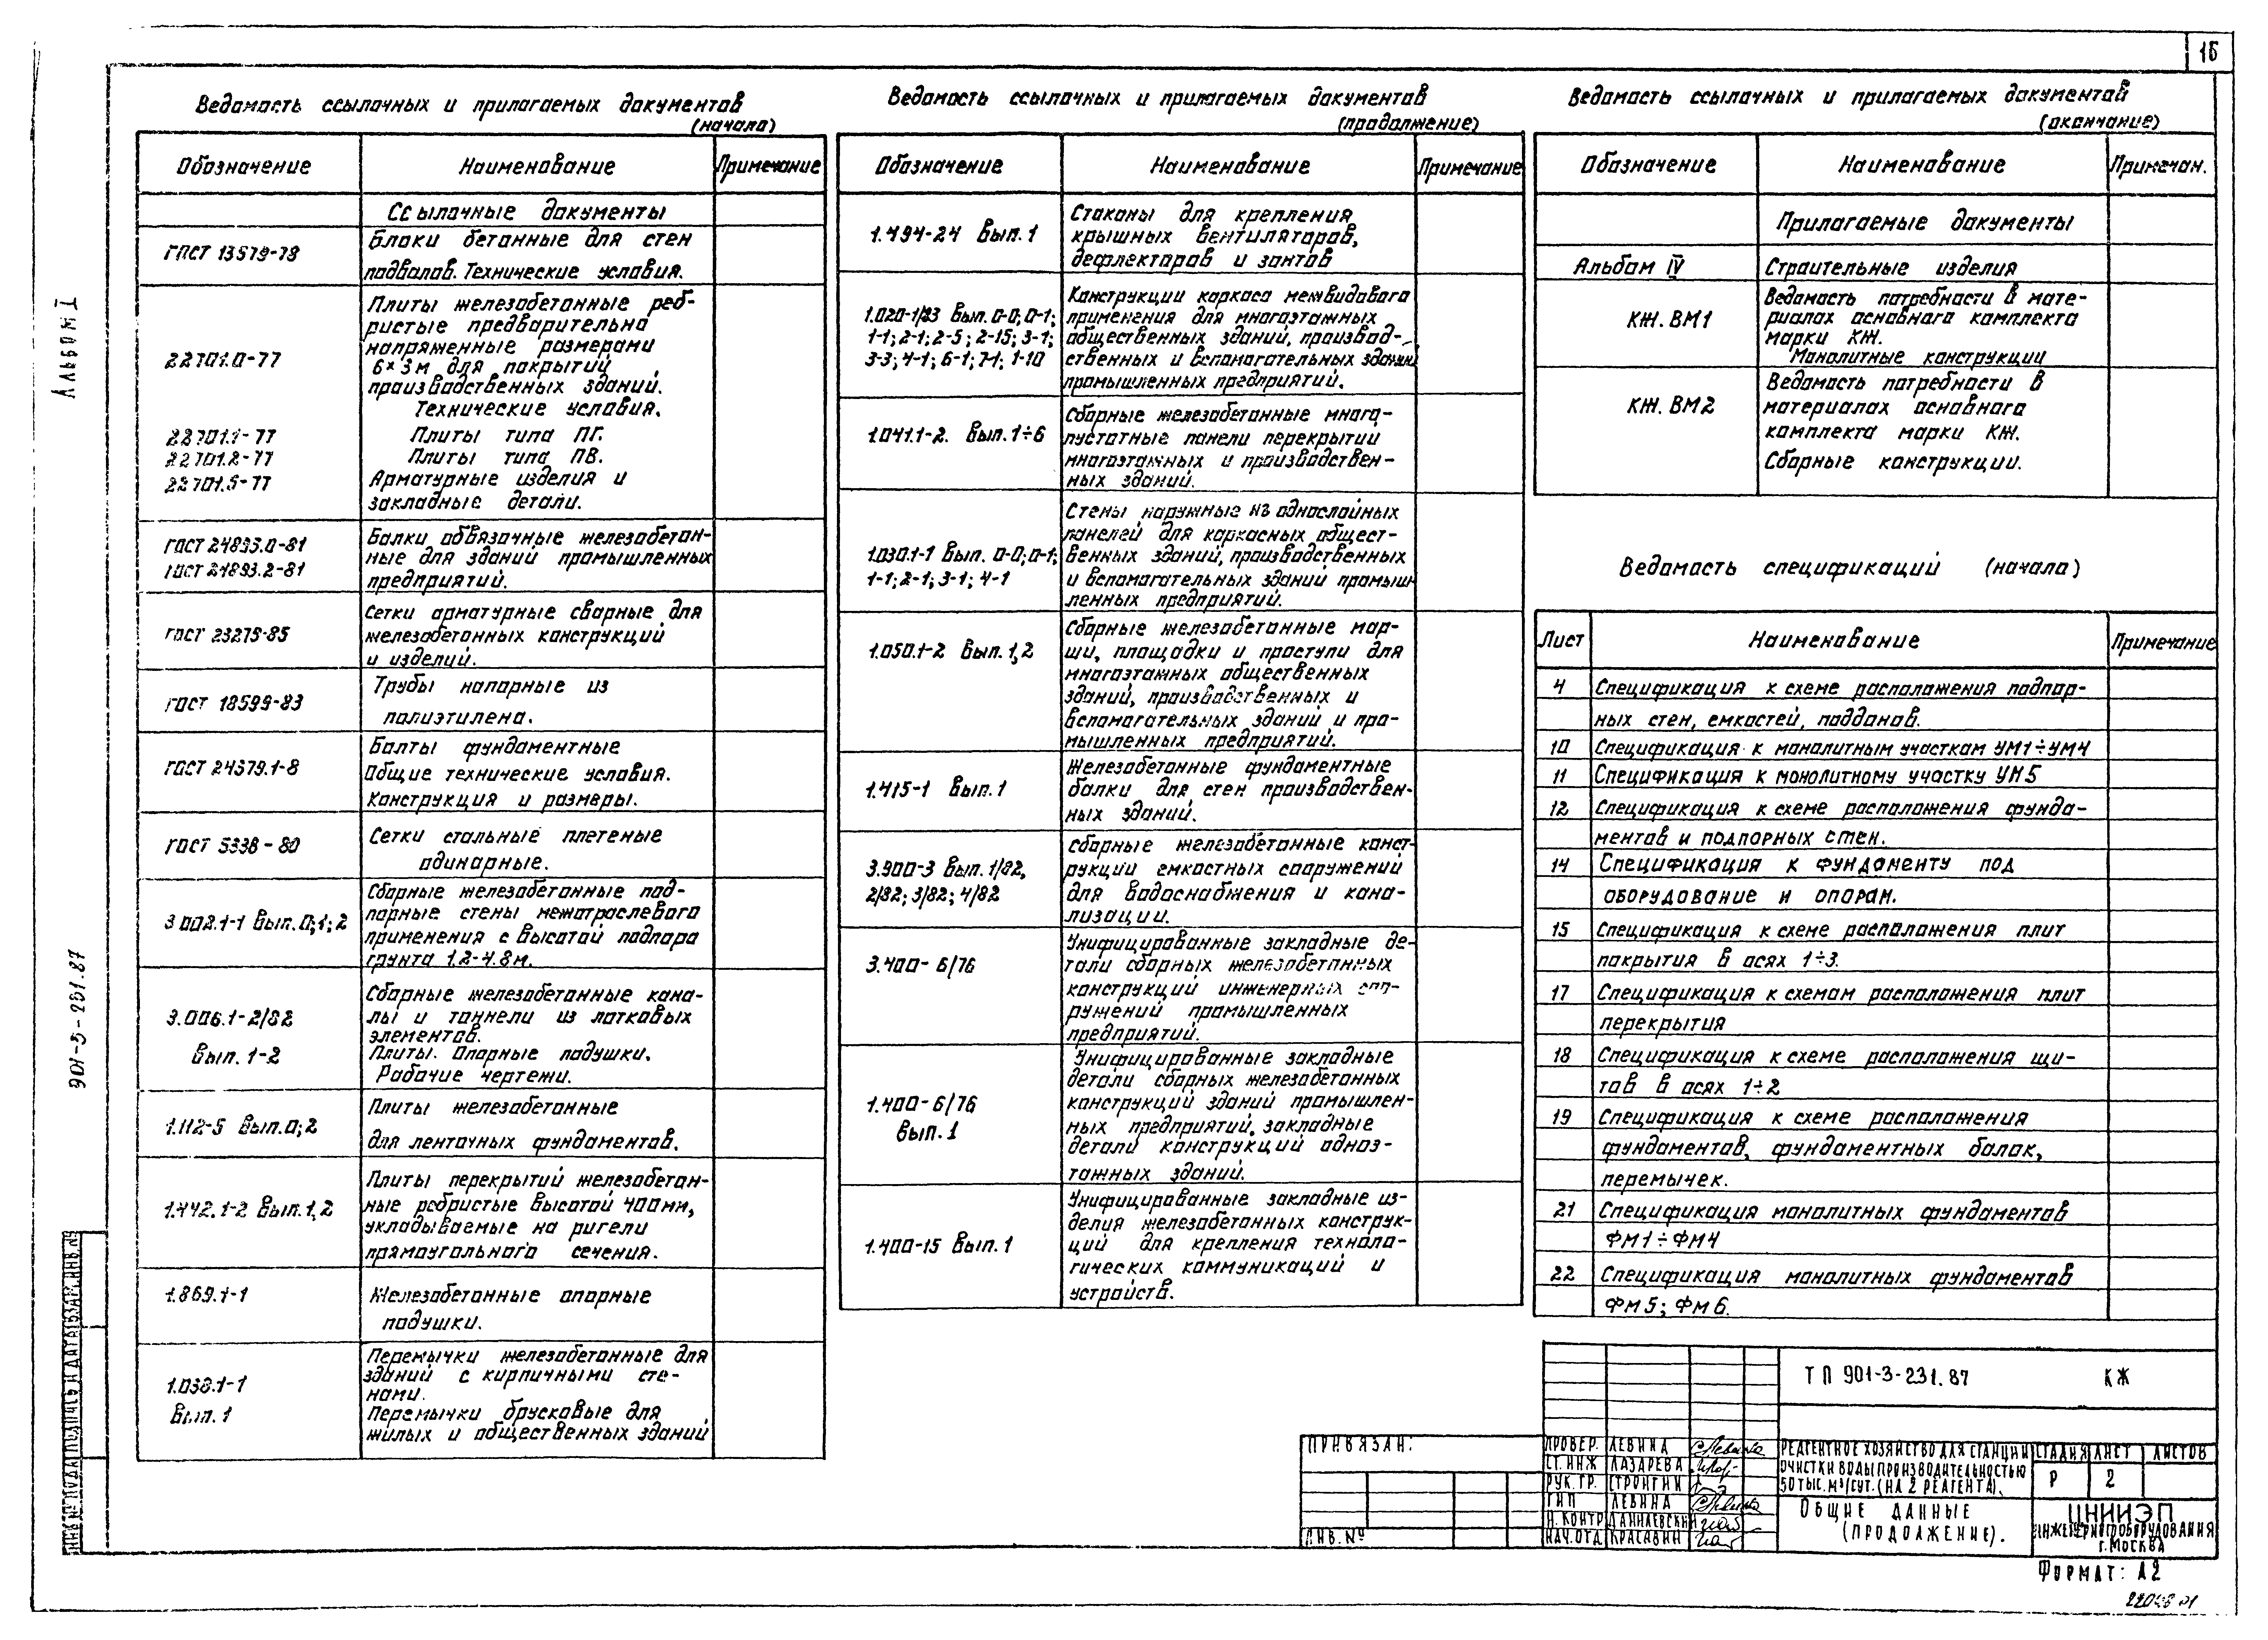 15
Альбом I
901-3-231.87
Ведомость ссылочных и прилагаемых документов
(начало)
Обозначение Наименование Примечание
Ссылочные документы
ГОСТ 13579-78 Блоки бетонные для стен
подвалов. Технические условия.
22701.0-77 Плиты железобетонные реб-
ристые предварительно
напряженные размерами
6×3м для покрытий
производственных зданий.
Технические условия.
22701.1-77 Плиты типа ПГ.
22701.2-77 Плиты типа ПВ.
22701.5-77 Арматурные изделия и
закладные детали.
ГОСТ 24893.0-81 Балки обвязочные железобетон-
ГОСТ 24893.2-81 ные для зданий промышленных
предприятий.
ГОСТ 23279-85 Сетки арматурные сварные для
железобетонных конструкций
и изделий.
ГОСТ 18599-83 Трубы напорные из
полиэтилена.
ГОСТ 24379.1-8 Болты фундаментные
Общие технические условия.
Конструкция и размеры.
ГОСТ 5338-80 Сетки стальные плетеные
одинарные.
3.002.1-1 Вып.0;1;2 Сборные железобетонные под-
порные стены межотраслевого
применения с высотой подпора
грунта 1.2-4.8м.
3.006.1-2/82 Сборные железобетонные кана-
лы и тоннели из лотковых
элементов.
Вып. 1-2 Плиты. Опорные подушки.
Рабочие чертежи.
1.112-5 Вып.0;2 Плиты железобетонные
для ленточных фундаментов.
1.442.1-2 Вып.1,2 Плиты перекрытий железобетон-
ные ребристые высотой 400мм,
укладываемые на ригели
прямоугольного сечения.
1.869.1-1 Железобетонные опорные
подушки.
1.038.1-1 Перемычки железобетонные для
зданий с кирпичными сте-
нами.
Вып. 1 Перемычки брусковые для
жилых и общественных зданий
Ведомость ссылочных и прилагаемых документов
(продолжение)
Обозначение Наименование Примечание
1.494-24 Вып.1 Стаканы для крепления
крышных вентиляторов,
дефлекторов и зонтов
1.020-1/83 Вып. 0-0; 0-1; Конструкции каркаса межвидового
1-1; 2-1; 2-5; 2-15; 3-1; применения для многоэтажных
3-3; 4-1; 6-1; 7-1; 1-10 общественных зданий, производ-
ственных и вспомогательных зданий
промышленных предприятий.
1.041.1-2. Вып. 1÷6 Сборные железобетонные много-
пустотные панели перекрытий
многоэтажных и производствен-
ных зданий.
1.030.1-1 Вып. 0-0; 0-1; Стены наружные из однослойных
1-1; 2-1; 3-1; 4-1 панелей для каркасных общест-
венных зданий, производственных
и вспомогательных зданий промыш
ленных предприятий.
1.050.1-2 Вып. 1,2 Сборные железобетонные мар-
ши, площадки и проступи для
многоэтажных общественных
зданий, производственных и
вспомогательных зданий и про-
мышленных предприятий.
1.415-1 Вып. 1 Железобетонные фундаментные
балки для стен производствен-
ных зданий.
3.900-3 Вып. 1/82, Сборные железобетонные конст-
2/82; 3/82; 4/82 рукции емкостных сооружений
для водоснабжения и кана-
лизации.
3.400-6/76 Унифицированные закладные де-
тали сборных железобетонных
конструкций инженерных соо-
ружений промышленных
предприятий.
1.400-6/76 Унифицированные закладные
Вып. 1 детали сборных железобетонных
конструкций зданий промышлен-
ных предприятий, закладные
детали конструкций одноэ-
тажных зданий.
1.400-15 Вып. 1 Унифицированные закладные из-
делия железобетонных конструк-
ций для крепления техноло-
гических коммуникаций и
устройств.
Ведомость ссылочных и прилагаемых документов
(окончание)
Обозначение Наименование Примечан.
Прилагаемые документы
Альбом IV Строительные изделия
КЖ. ВМ1 Ведомость потребности в мате-
риалах основного комплекта
марки КЖ.
Монолитные конструкции
КЖ. ВМ2 Ведомость потребности в
материалах основного
комплекта марки КЖ.
Сборные конструкции.
Ведомость спецификаций (начало)
Лист Наименование Примечание
4 Спецификация к схеме расположения подпор-
ных стен, емкостей, поддонов.
10 Спецификация к монолитным участкам УМ1÷УМ4
11 Спецификация к монолитному участку УМ5
12 Спецификация к схеме расположения фунда-
ментов и подпорных стен.
14 Спецификация к фундаменту под
оборудование и опорам.
15 Спецификация к схеме расположения плит
покрытия в осях 1÷3.
17 Спецификация к схемам расположения плит
перекрытия
18 Спецификация к схеме расположения щи-
тов в осях 1÷2
19 Спецификация к схеме расположения
фундаментов, фундаментных балок,
перемычек.
21 Спецификация монолитных фундаментов
ФМ1÷ФМ4
22 Спецификация монолитных фундаментов
ФМ5; ФМ6.
ТП 901-3-231.87 КЖ
Привязан:
Инв. №
Провер. Левина
Ст. инж Лазарева
Рук. гр. Стронгин
ГИП Левина
Н. контр Данилевский
Нач. отд. Красавин
Реагентное хозяйство для станции
очистки воды производительностью
50 тыс. м³/сут. (на 2 реагента).
Стадия Лист Листов
Р 2
Общие данные
(продолжение).
ЦНИИЭП
инженерного оборудования
г. Москва
Формат: А2
Инв. № подл. Подпись и дата Взам. инв. №